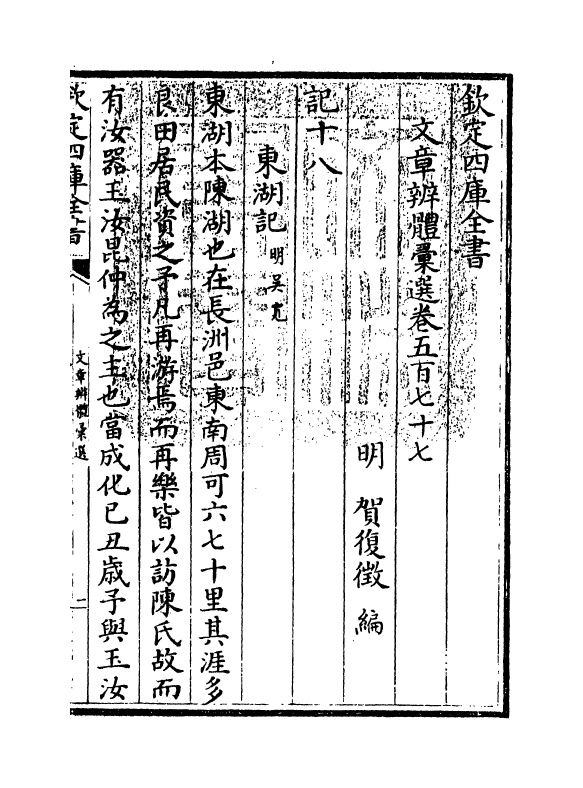 欽定四庫全書
文章辨體彚選卷五百七十七
明 賀復徵 編
記十八
東湖記 明吳寛
東湖本陳湖也在長洲邑東南周可六七十里其涯多
良田居民資之予凡再游焉而再樂皆以訪陳氏故而
有汝器玉汝昆仲為之主也當成化己丑歳予與玉汝
欽定四庫全書
文章辨體彚選